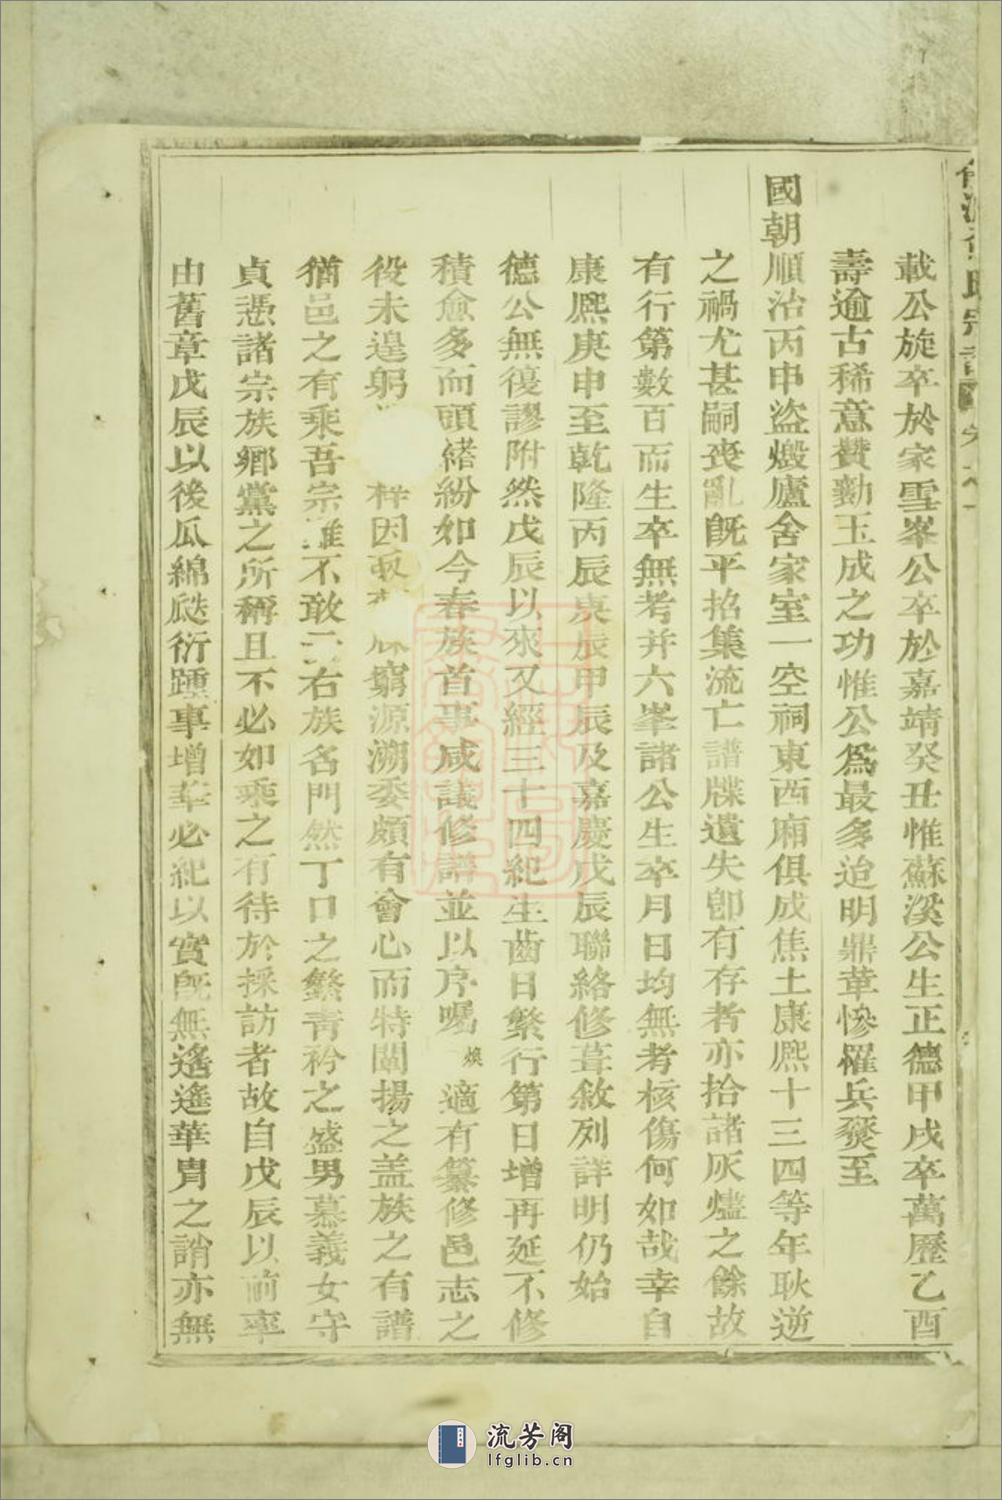 載公旋卒於家雪峯公卒於嘉靖癸丑惟蘇溪公生正德甲戌卒萬歷乙酉
壽逾古稀意贊勷玉成之功惟公爲最多迨明鼎革慘罹兵燹至
國朝順治丙申盜燬廬舍家室一空祠東西廂俱成焦土康熈十三四等年耿逆
之禍尤甚嗣喪亂既平招集流亡譜牒遺失卽有存者亦拾諸灰燼之餘故
有行第數百而生卒無考并六峯諸公生卒月日均無考核傷何如哉幸自
康熈庚申至乾隆丙辰庚辰甲辰及嘉慶戊辰聯絡修葺敘列詳明仍始
德公無復謬附然戊辰以來又經三十四紀生齒日繁行第日增再延不修
積愈多而頭緒紛如今春族首事咸議修譜並以序囑煥適有纂修邑志之
役未遑躬梓因取窮源溯委頗有會心而特闡揚之盖族之有譜
猶邑之有乘吾宗雖不敢云右族名門然丁口之繁青衿之盛男慕義女守
貞憑諸宗族鄉黨之所稱且不必如乘之有待於採訪者故自戊辰以前率
由舊章戊辰以後瓜綿瓞衍踵事增華必紀以實既無遙遙華胄之誚亦無
氏宗譜
流芳阁
lfglib.cn